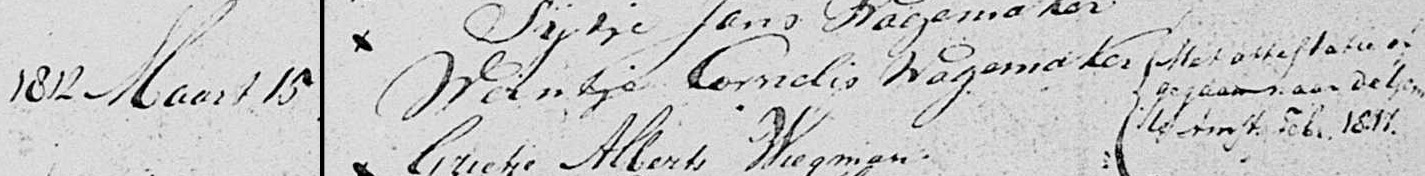 Sijtje Jans Wagemaker
1812 Maart 15 Weintje Cornelis Wagemaker
Met attestatie
gegaan naar de
Amst. Feb. 1817.
Grietje Alberts Wiegman